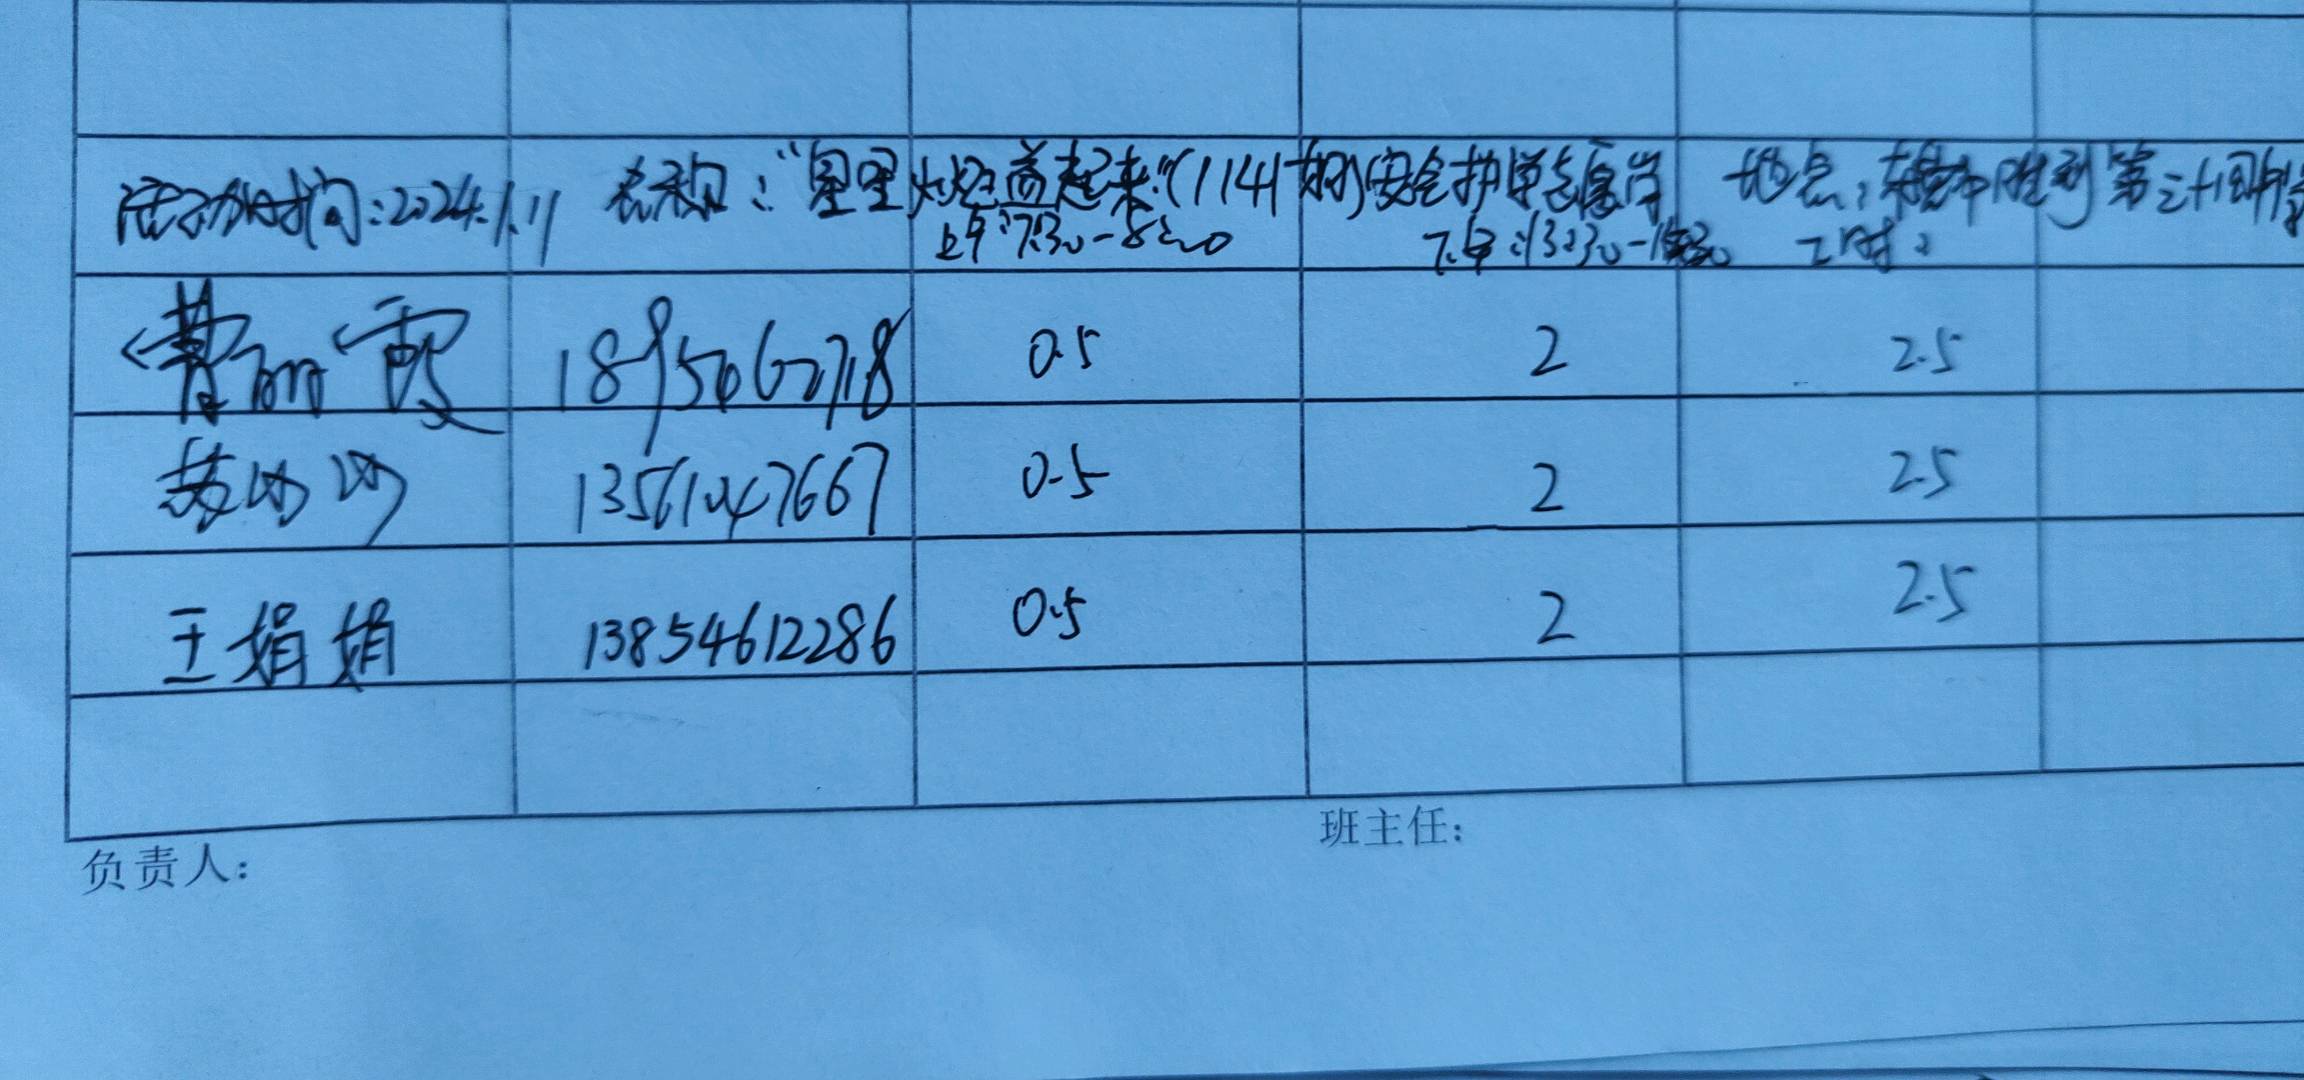 活动时间:2024.1.11 名称:“星星火炬益起来”(1141期)安全护学志愿岗 地点:东营市胜利第三十一中学
上午:7:30-8:00 下午:13:30-15:30 工时:
18950627718 0.5 2 2.5
苏沙沙 13561047667 0.5 2 2.5
王娟娟 13854612286 0.5 2 2.5
负责人: 班主任: